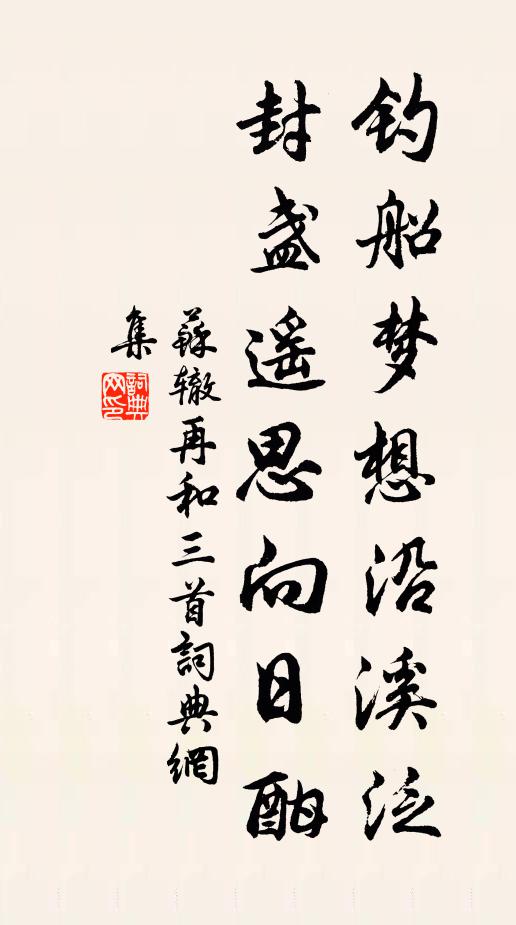 钓船梦想沿溪泛
封盏遥思向日酣
蘇辙再和三首詞典網
集
詞典
网印